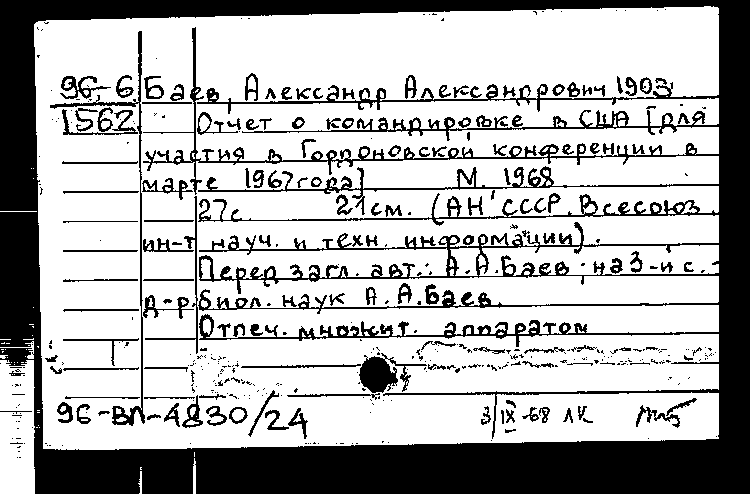 96-6 Баев, Александр Александрович, 1903
1562 Отчет о командировке в США [для
участия в Гордоновской конференции в
марте 1967 года] М. 1968.
27с. 21 см. (АН СССР. Всесоюз.
ин-т науч. и техн. информации).
Перед загл. авт.: А.А.Баев; на 3-й с. -
д-р биол. наук А.А.Баев.
Отпеч. множит. аппаратом
96-ВП-4830/24 3/IX-68 ЛК